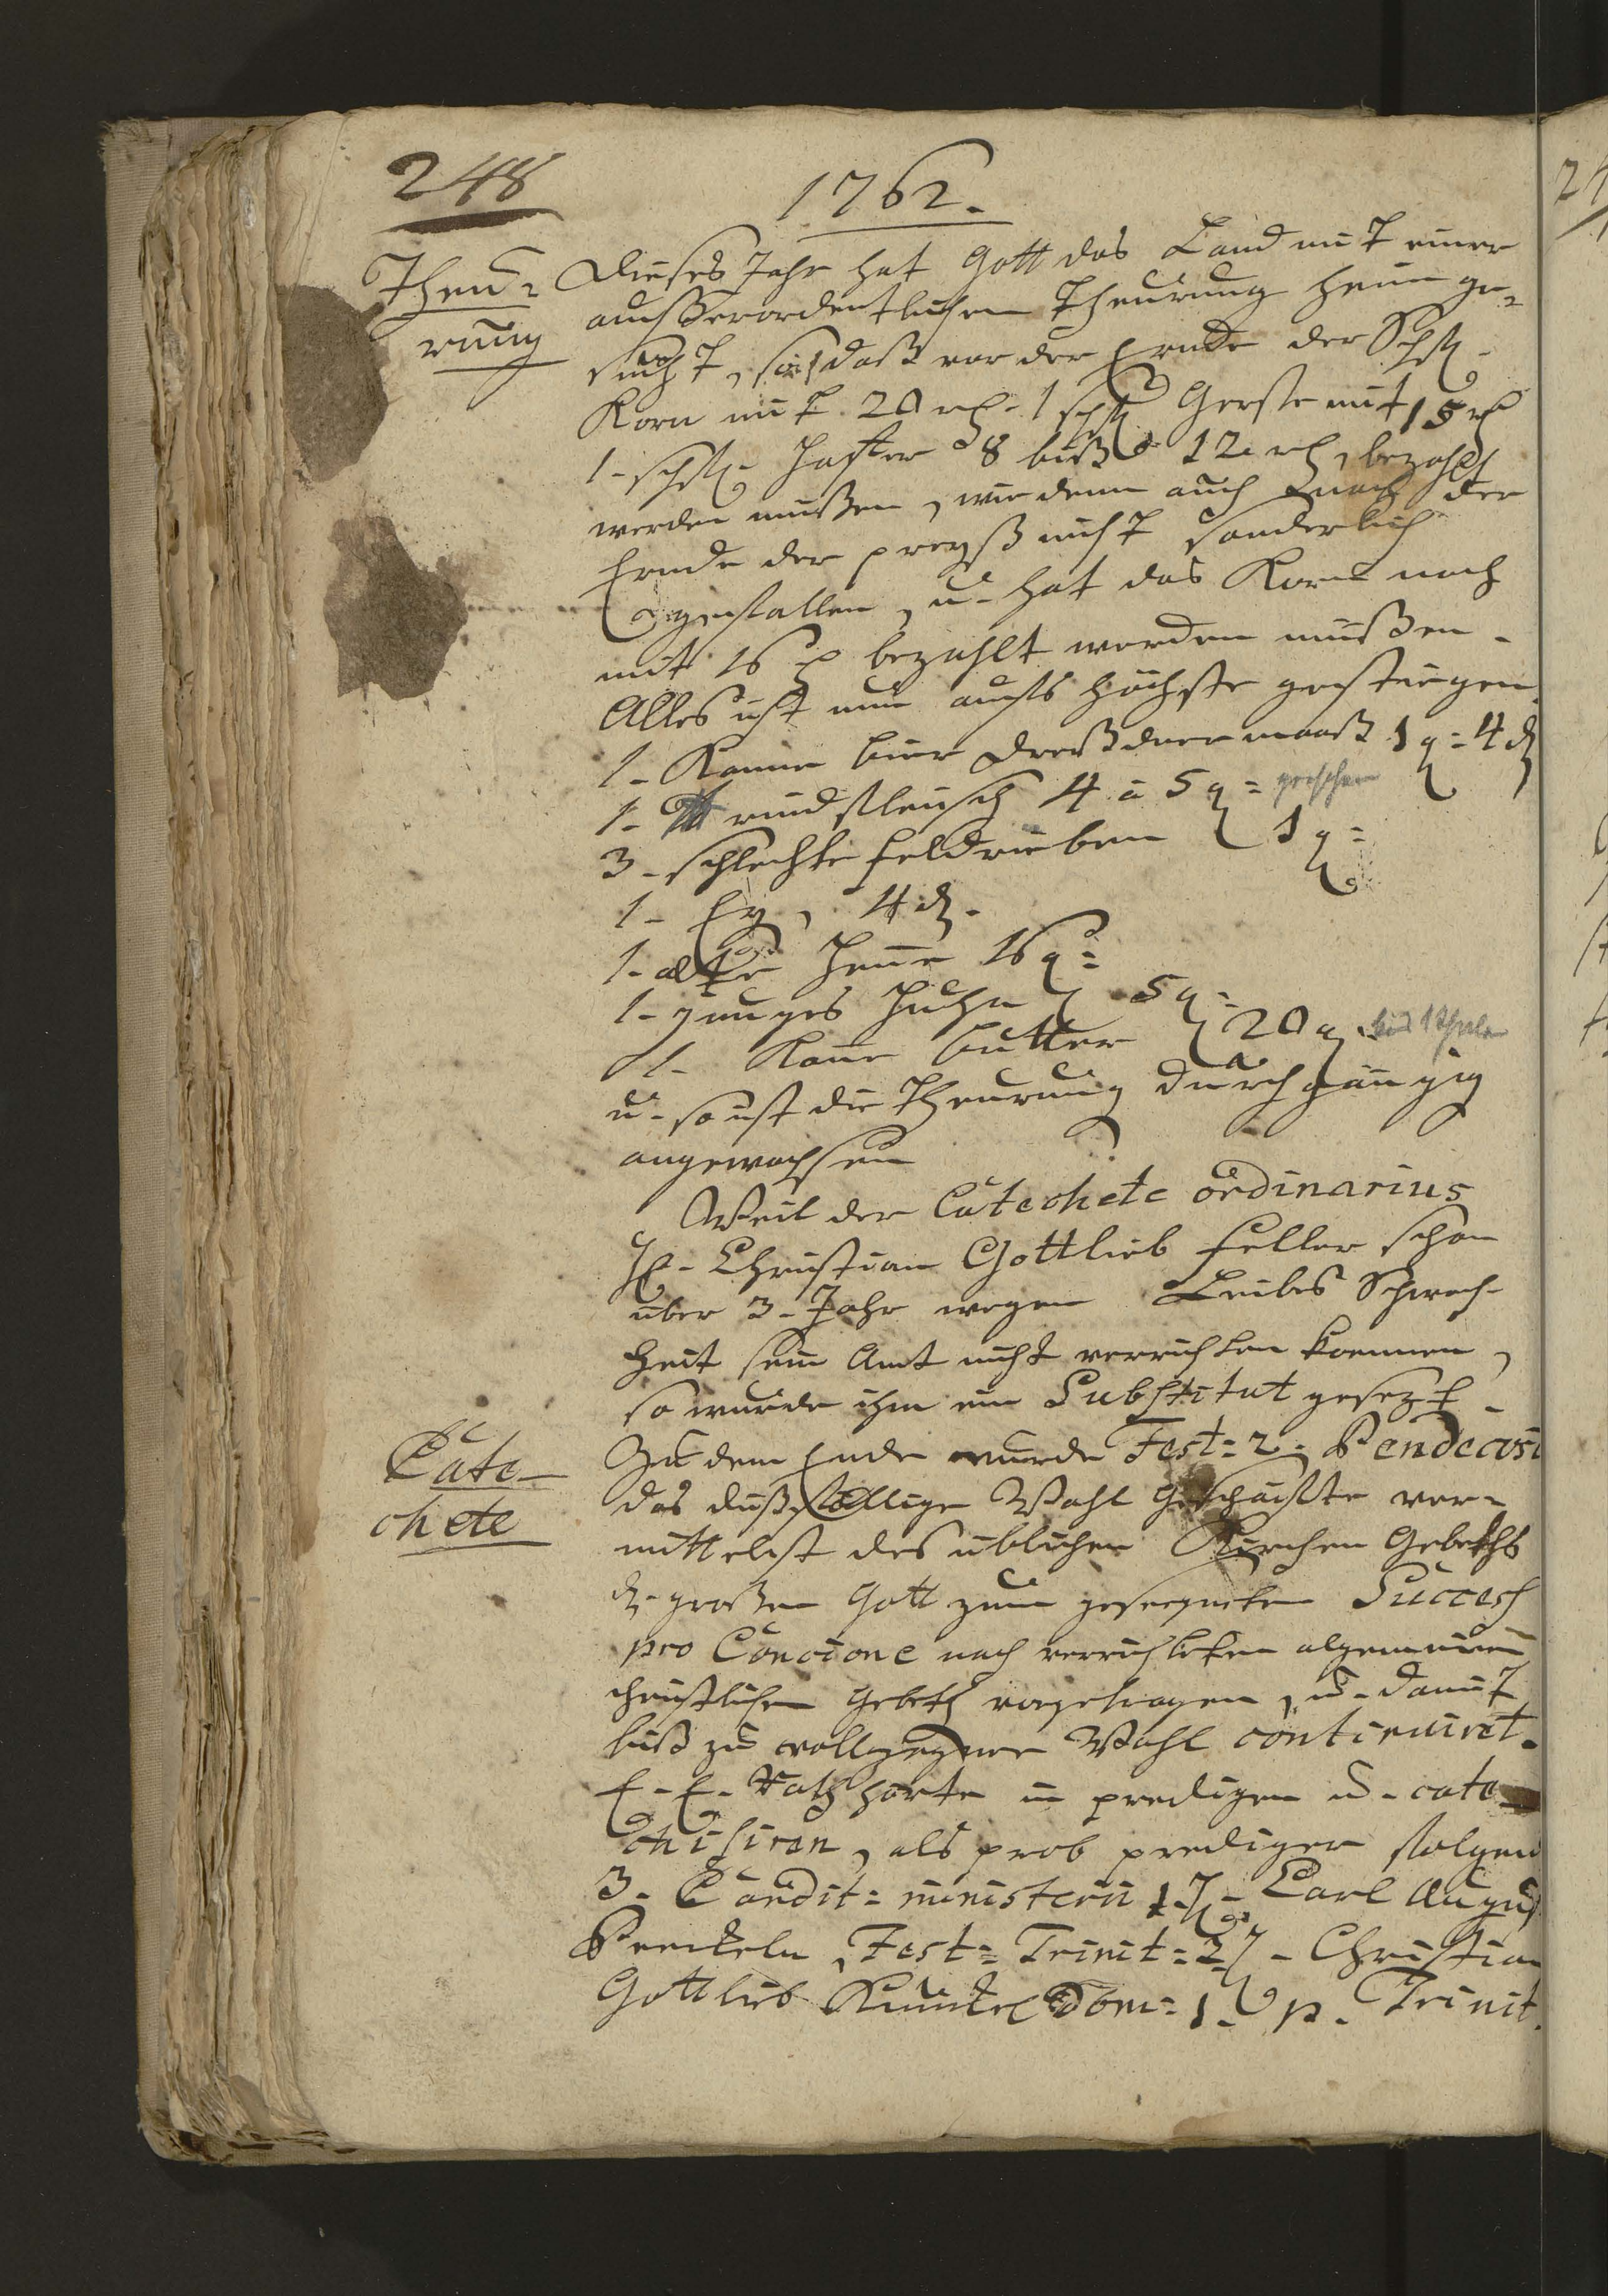 248
1762.
Theu-
rung
Dieses Jahr hat Gott das Land mit einer
außerordentlichen Theurung heim ge-
sucht, so, daß vor der Ernde der Schfl.
Korn mit 20 rh. 1 schfl. Gerste mit 15 rh
1. schfl. Haffer 8 biß 12 rh, bezahlt
werden müßen, wie denn auch nach der
Ernde der preyß nicht sonderlich
gefallen, u. hat das Korn noch
mit 16 rh bezahlt werden müßen.
Alles ist nun aufs höchste gestiegen
1. Kanne bier Dreßdner maaß 1 g: 4 d
1. ℔ rindfleisch 4 à 5 g:
3. schlechte feldrieben 1 g:
1. Ey, 4 d.
1. alte Henne 16 g:
1. junges Huhn 5 g.
1. Kanne butter 20 g. bis 1 Thaler
u. so ist die Theurung durchgängig
angewachsen
Weil der Catechete ordinarius
H. Christian Gottlieb Feller schon
über 3. Jahr wegen Leibes Schwach-
heit sein Amt nicht verrichten koennen,
so wurde ihm ein Substitut gesezt.
Cate-
chete
Zu dem Ende wurde Fest: 2. Pendecost
das dißfällige Wahl Geschäffte ver-
mittelst des üblichen Kirchen Gebeths
d. großen Gott zum geseegneten Success
pro Concione nach verrichteten algemeinen
christlichen Gebeth vorgetragen, u. damit
biß zu vollzogener Wahl continuiret.
E. E. Rath horte in predigen u. cate-
chisiren, als prob prediger folgend
3. Candit: ministerii 1. H. Carl August
Fest: Trinit: 2. H. Christian
Gottlieb Kunkel Dom: 1. p. Trinit.